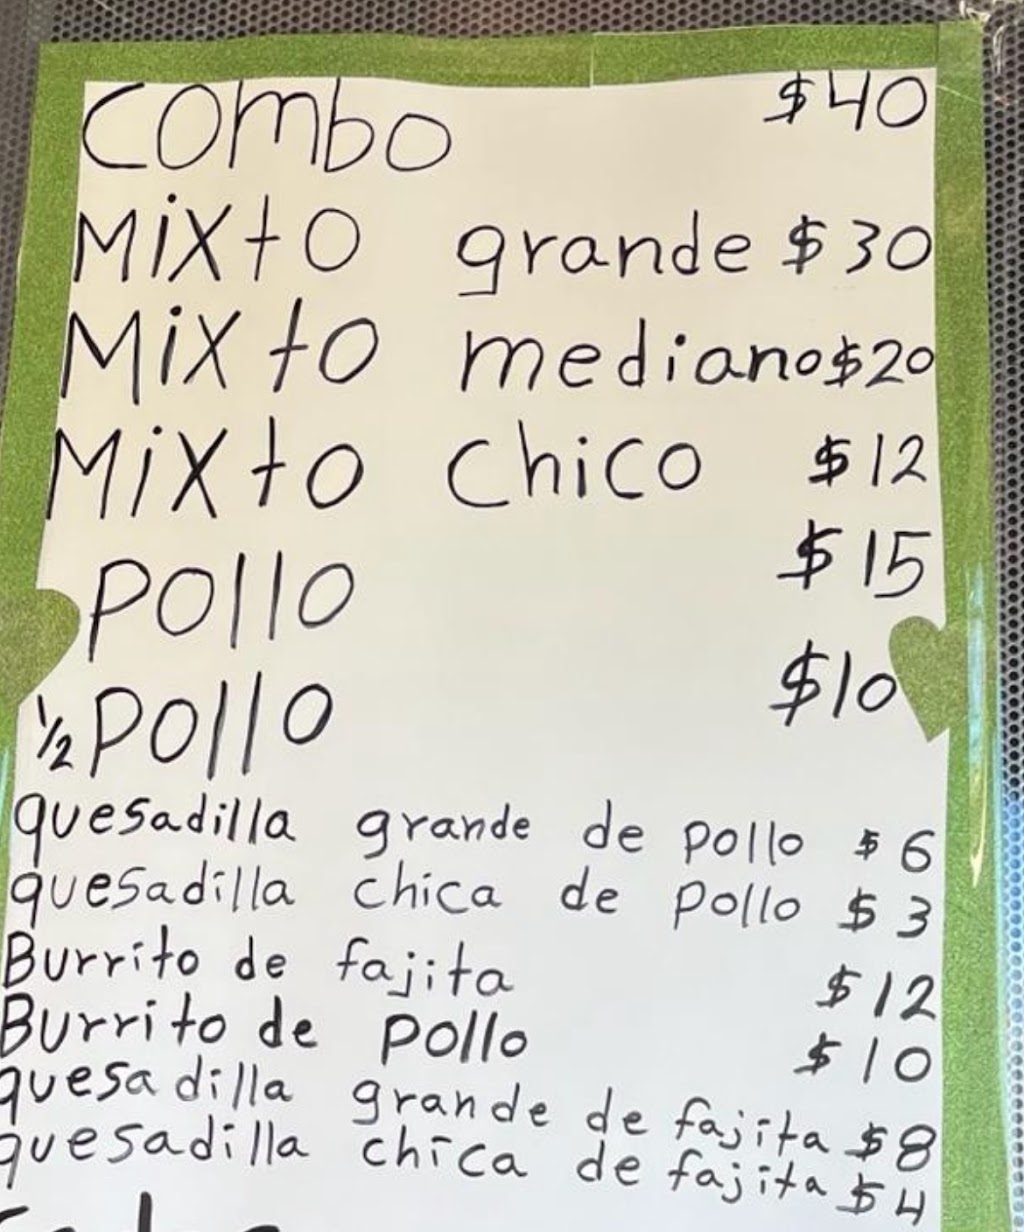 Combo $40
Mixto grande $30
Mixto mediano $20
Mixto Chico $12
Pollo $15
½ Pollo $10
quesadilla grande de pollo $6
quesadilla chica de pollo $3
Burrito de fajita $12
Burrito de pollo $10
quesadilla grande de fajita $8
quesadilla chica de fajita $4